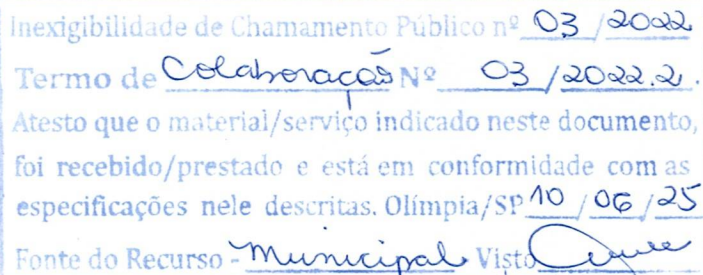 Inexigibilidade de Chamamento Público nº 03 /2022
Termo de Colaboração Nº 03 /2022.2.
Atesto que o material/serviço indicado neste documento,
foi recebido/prestado e está em conformidade com as
especificações nele descritas. Olímpia/SP 10 / 06 / 25
Fonte do Recurso - Municipal Visto